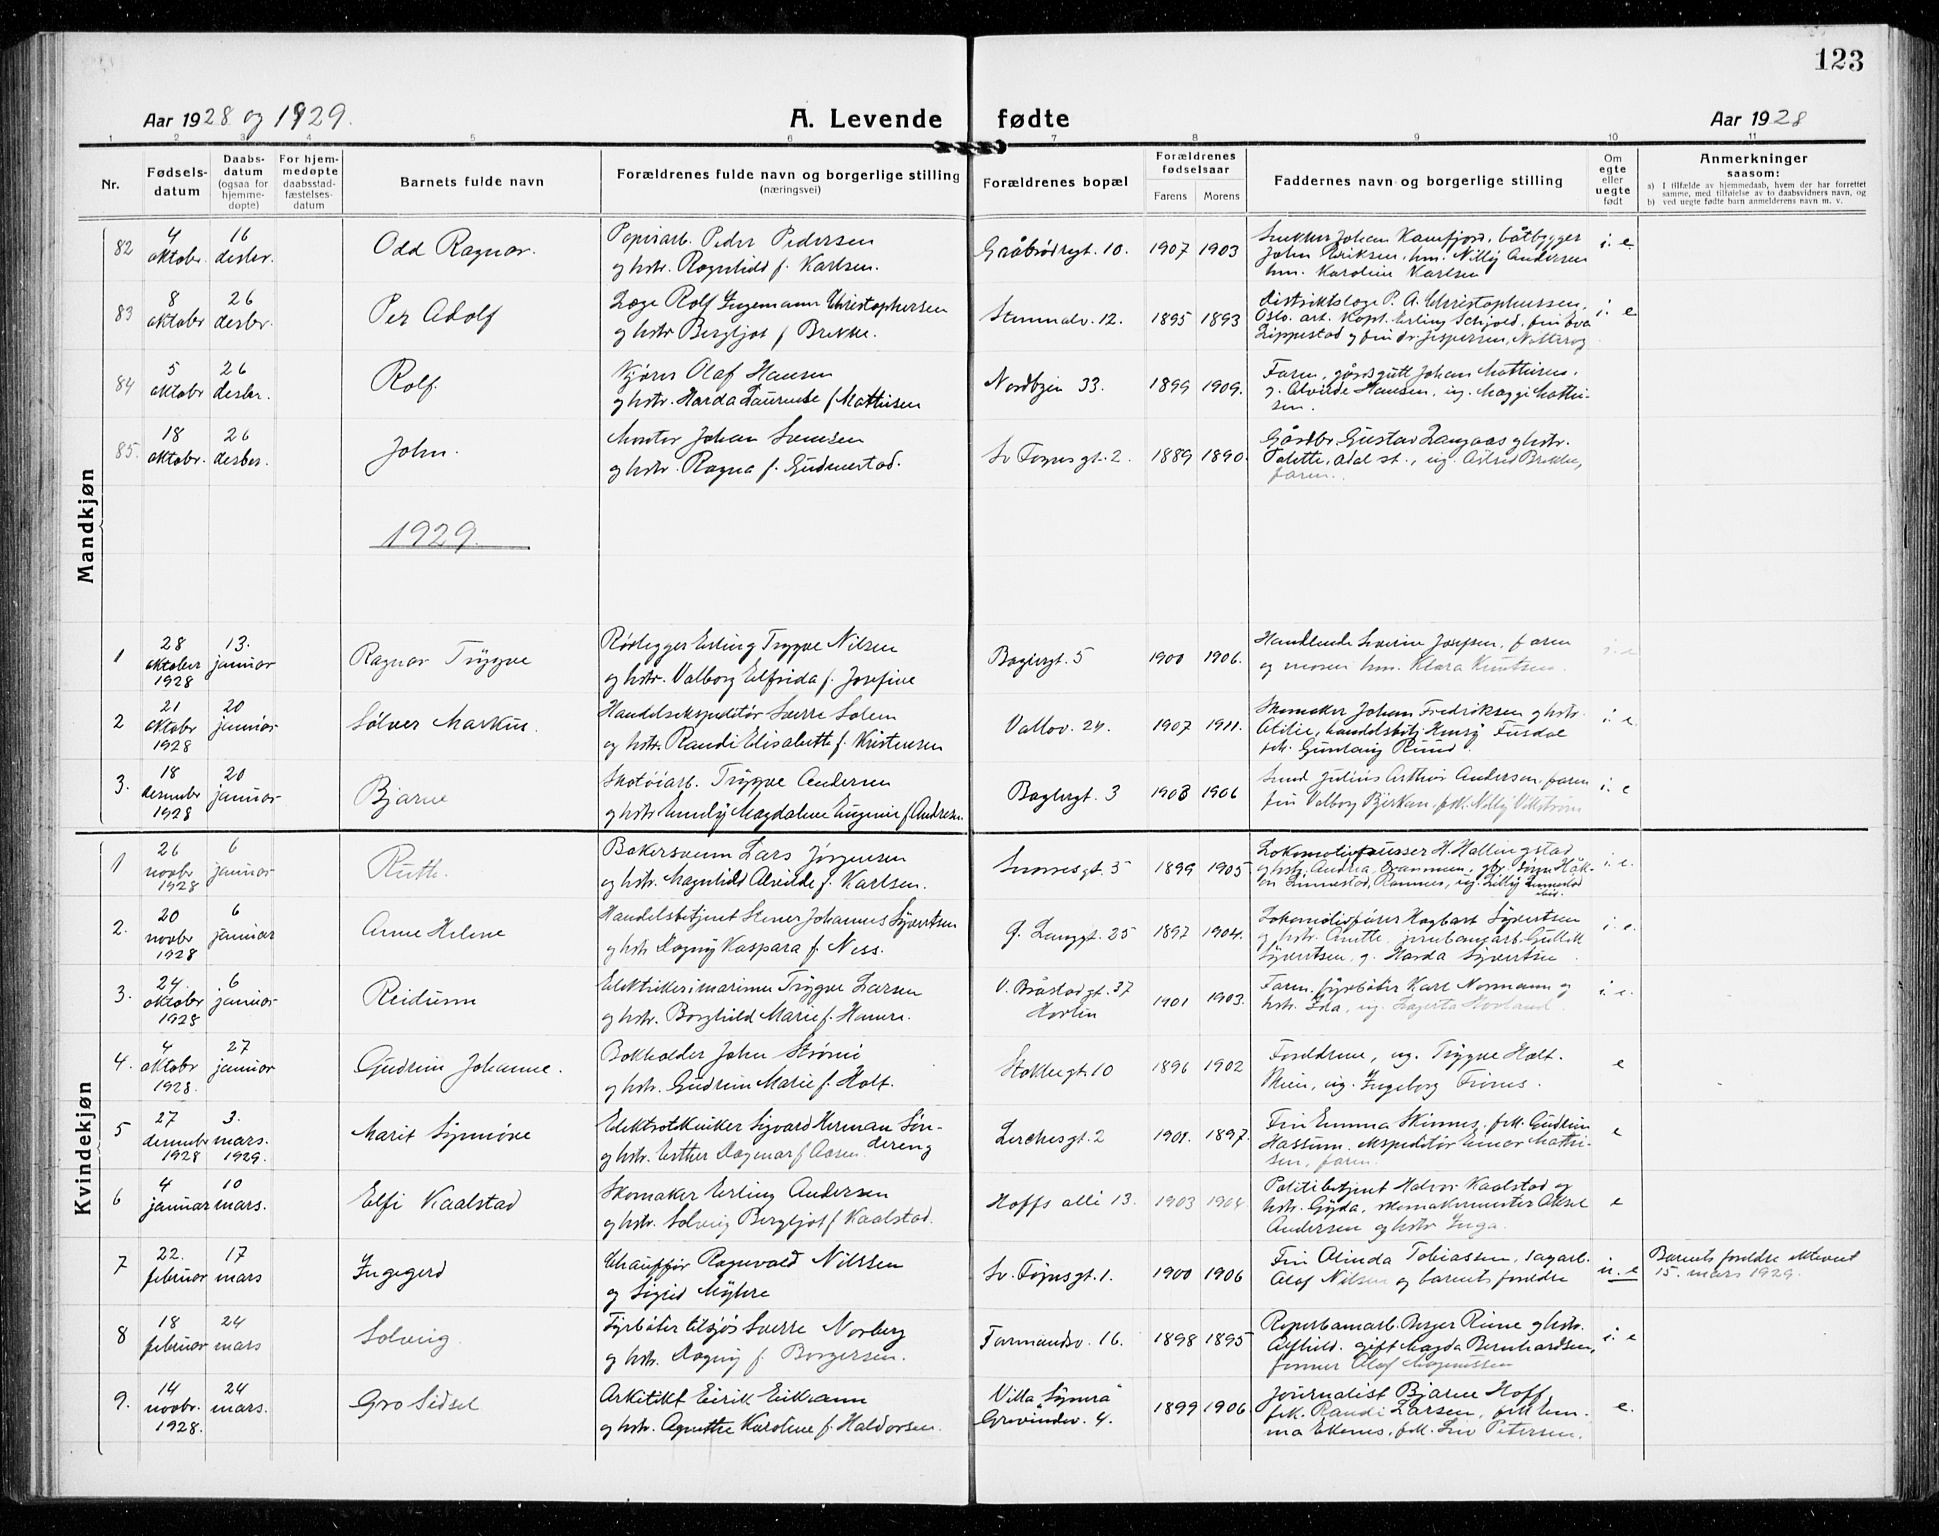 123
Aar 1928 og 1929.
A. Levende fødte
Aar 1928
1 2 3 4 5 6 7 8 9 10 11
Nr.
Fødsels-
datum
Daabs-
datum
(ogsaa for
hjemme-
døpte)
For hjem-
medøpte
daabsstad-
fæstelses-
datum
Barnets fulde navn
Forældrenes fulde navn og borgerlige stilling
(næringsvei)
Forældrenes bopæl
Forældrenes
fødselsaar
Farens Morens
Faddernes navn og borgerlige stilling
Om
egte
eller
uegte
født
Anmerkninger
saasom:
a) I tilfælde av hjemmedaab, hvem der har forrettet
samme, med tilføielse av to daabsvidners navn, og
b) ved uegte fødte barn anmelderens navn m. v.
Mandkjøn
82 4 oktober. 16 desbr. Odd Ragnar.
Papirarb. Peder Pedersen
og hstr. Ragnhild f. Karlsen.
Gråbrødregt. 10. 1907 1903
Snekker Johan Kanefjord, båtbygger
John Eriksen, hm. Nilly Andersen
hm. Karoline Karlsen
i. e.
83 8 oktober 26 desbr. Per Adolf
Læge Rolf Ingemann Christophersen
og hstr. Bergljot f. Brekke.
Stenmalv. 12. 1895 1893
distriktslæge P. A. Christophersen,
Oslo. art. kapt. Erling Schjold. fru Eva
Lippestad og fru dr. Jespersen, Nøtterøy
i. e
84 5 oktobr 26 desbr. Rolf.
Kjører Olaf Hansen
og hstr. Harda Laurentse f. Mathisen
Nordbyen 33. 1899 1909.
Faren, gårdsgutt Johan Mathisen.
g. Alvilde Hansen, ug. Maggi Mathi-
sen.
85. 18 oktober. 26 desber. John.
Montør Johan Svensen
og hstr. Ragna f. Gudmestad.
Sv. Foynsgt. 2. 1889 1890.
Gårdbr. Gustav Langaas og hstr.
Talette, Adal st., ug. Astrid Brekke,
faren.
1929.
1 28 oktober 1928 13. januar Ragnar Trygve
Rørlegger Erling Trygve Nilsen
og hstr. Valborg Elfrida f. Josefine
Baglergt. 5 1900 1906.
Handlende Sverine Josefsen, faren
og moren hm. Klara Knutsen.
i. e
2 21 oktober 1928 20 januar Sølver Markus.
Handelsekspeditør Sverre Solem
og hstr. Randi Elisabeth f. Kristensen
Valløv. 24. 1907 1911.
Skomaker Johan Fredriksen og hstr.
Otilie, handelsbetj. Henry Fusdal
frk. Gunlaug Ruud.
i. e.
3. 18 desember 1928 20 januar Bjarne
Skotøiarb. Trygve Andersen
og hstr. Emely Magdalene Eugenie f. Andresen.
Baglergt. 3 1908 1906
Smed Julius Arthur Andersen, faren
fru Valborg Bjerkan, frk. Nelly Vikstrøm
i. e
Kvindekjøn
1 26 novbr 1928 6 januar Ruth.
Bakersvenn Lars Jørgensen
og hstr. Magnhild Alvilde f. Karlsen.
Snorresgt. 5 1899 1905
Lokomotivpusser H. Hallingstad
og hstr. Andrea, Drammen, gbr. Sigur Håk-
on Linnestad, Ramnes, ug. Lilly Linnestad
i. e.
2. 20 novbr 1928 6 januar Anne Helene
Handelsbetjent Stener Johannes Syvertsen
og hstr. Dagny Kaspara f. Ness.
G. Langgt. 25 1897 1904.
Lokomotivfører Hagbart Syvertsen
og hstr. Anette, jernbanearb. Gullik
Syvertsen, g. Harda Syvertsen
i. e.
3. 24. oktobr 1928 6 januar Reidunn
Elektriker i marinen Trygve Larsen
og hstr. Borghild Marie f. Hansen.
V. Bråstadgt. 37
Horten 1901 1903.
Faren, fyrbøter Karl Normann og
hstr. Ida, ug. Lagerta Hovland
i. e.
4. 4 oktobr 1928. 27 januar Gudrun Johanne.
Bokholder John Strømø
og hstr. Gudrun Marie f. Holt.
Stokkegt. 10 1896 1902
Foreldrene, ug. Trygve Holt.
Moien, ug. Ingeborg Frønes.
e
5 27 desember 1928 3. mars. 1929. Marit Synnøve
Elektrotekniker Sigvard Herman Søn-
dereng
og hstr. Esther Dagmar f. Aasen
Lerchesgt. 2 1901. 1897.
Fru Emma Skinnes, frk. Gudrun
Hassum. ekspeditør Einar Mathi-
sen, faren.
e
6 4 januar 10 mars. Elfi Kaalstad
Skomaker Erling Andersen
og hstr. Solveig Bergljot f. Kaalstad.
Hoffs allé 13. 1903 1904
Politibetjent Halvor Kaalstad og
hstr. Gyda, skomakermester Aksel
Andersen og hstr. Inga.
e
7 22. februar 17 mars Ingegerd
Chauffør Ragnvald Nilssen
og Sigrid Myhre
Sv. Foynsgt. 1. 1900 1906
Fru Olinda Tobiassen, sagarb.
Olaf Nilsen og barnets foreldre
u. e
Barnets foreldre ektevïet
15. mars 1929.
8 18 februar 24 mars Solveig.
Fyrbøter tilsjøs Sverre Norberg
og hstr. Dagny f. Borgersen.
Farmandsv. 16. 1898 1895
Reperbanearb. Asger Rune og hstr.
Alfhild. gift Magda Bernhardsen,
former Olaf Magnussen
i. e
9. 14 novbr. 1928. 24 mars. Gro Sidsel
Arkitekt Eirik Eikrann
og hstr. Agnethe Karoline f. Haldorsen.
Villa "Synnrå"
Grevindev. 4. 1899 1906
Journalist Bjarne Hoff,
frk. Randi Larsen, frk. Em-
ma Ekenes, frk. Liv Petersen.
e.